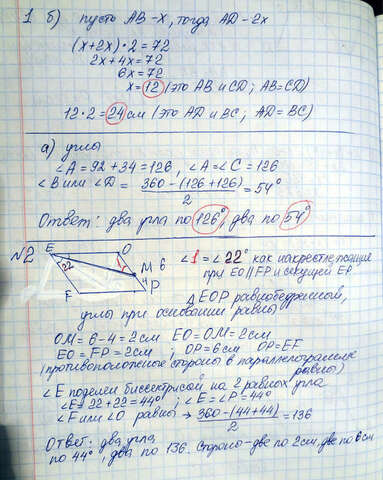 1 б) пусть AB - x, тогда AD - 2x
(x+2x)·2=72
2x+4x=72
6x=72
x=12 (это AB и CD; AB=CD)
12·2=24см (это AD и BC; AD=BC)
а) углы
∠A=92+34=126, ∠A=∠C=126
∠B или ∠D= 360-(126+126)/2 =54°
Ответ: два угла по 126°, два по 54°
№2 E O M 6 4 P F 22
∠1=∠22° как накрест лежащие
при EO||FP и секущей EP
△EOP равнобедренный,
углы при основании равны
OM=6-4=2см EO=OM=2см
EO=FP=2см; OP=6см OP=EF
(противоположные стороны в параллелограмме
равны)
∠E поделен биссектрисой на 2 равных угла
∠E=22+22=44°; ∠E=∠P=44°
∠F или ∠O равны → 360-(44+44)/2 =136
Ответ: два угла
по 44°, два по 136. Стороны-две по 2см, две по 6см